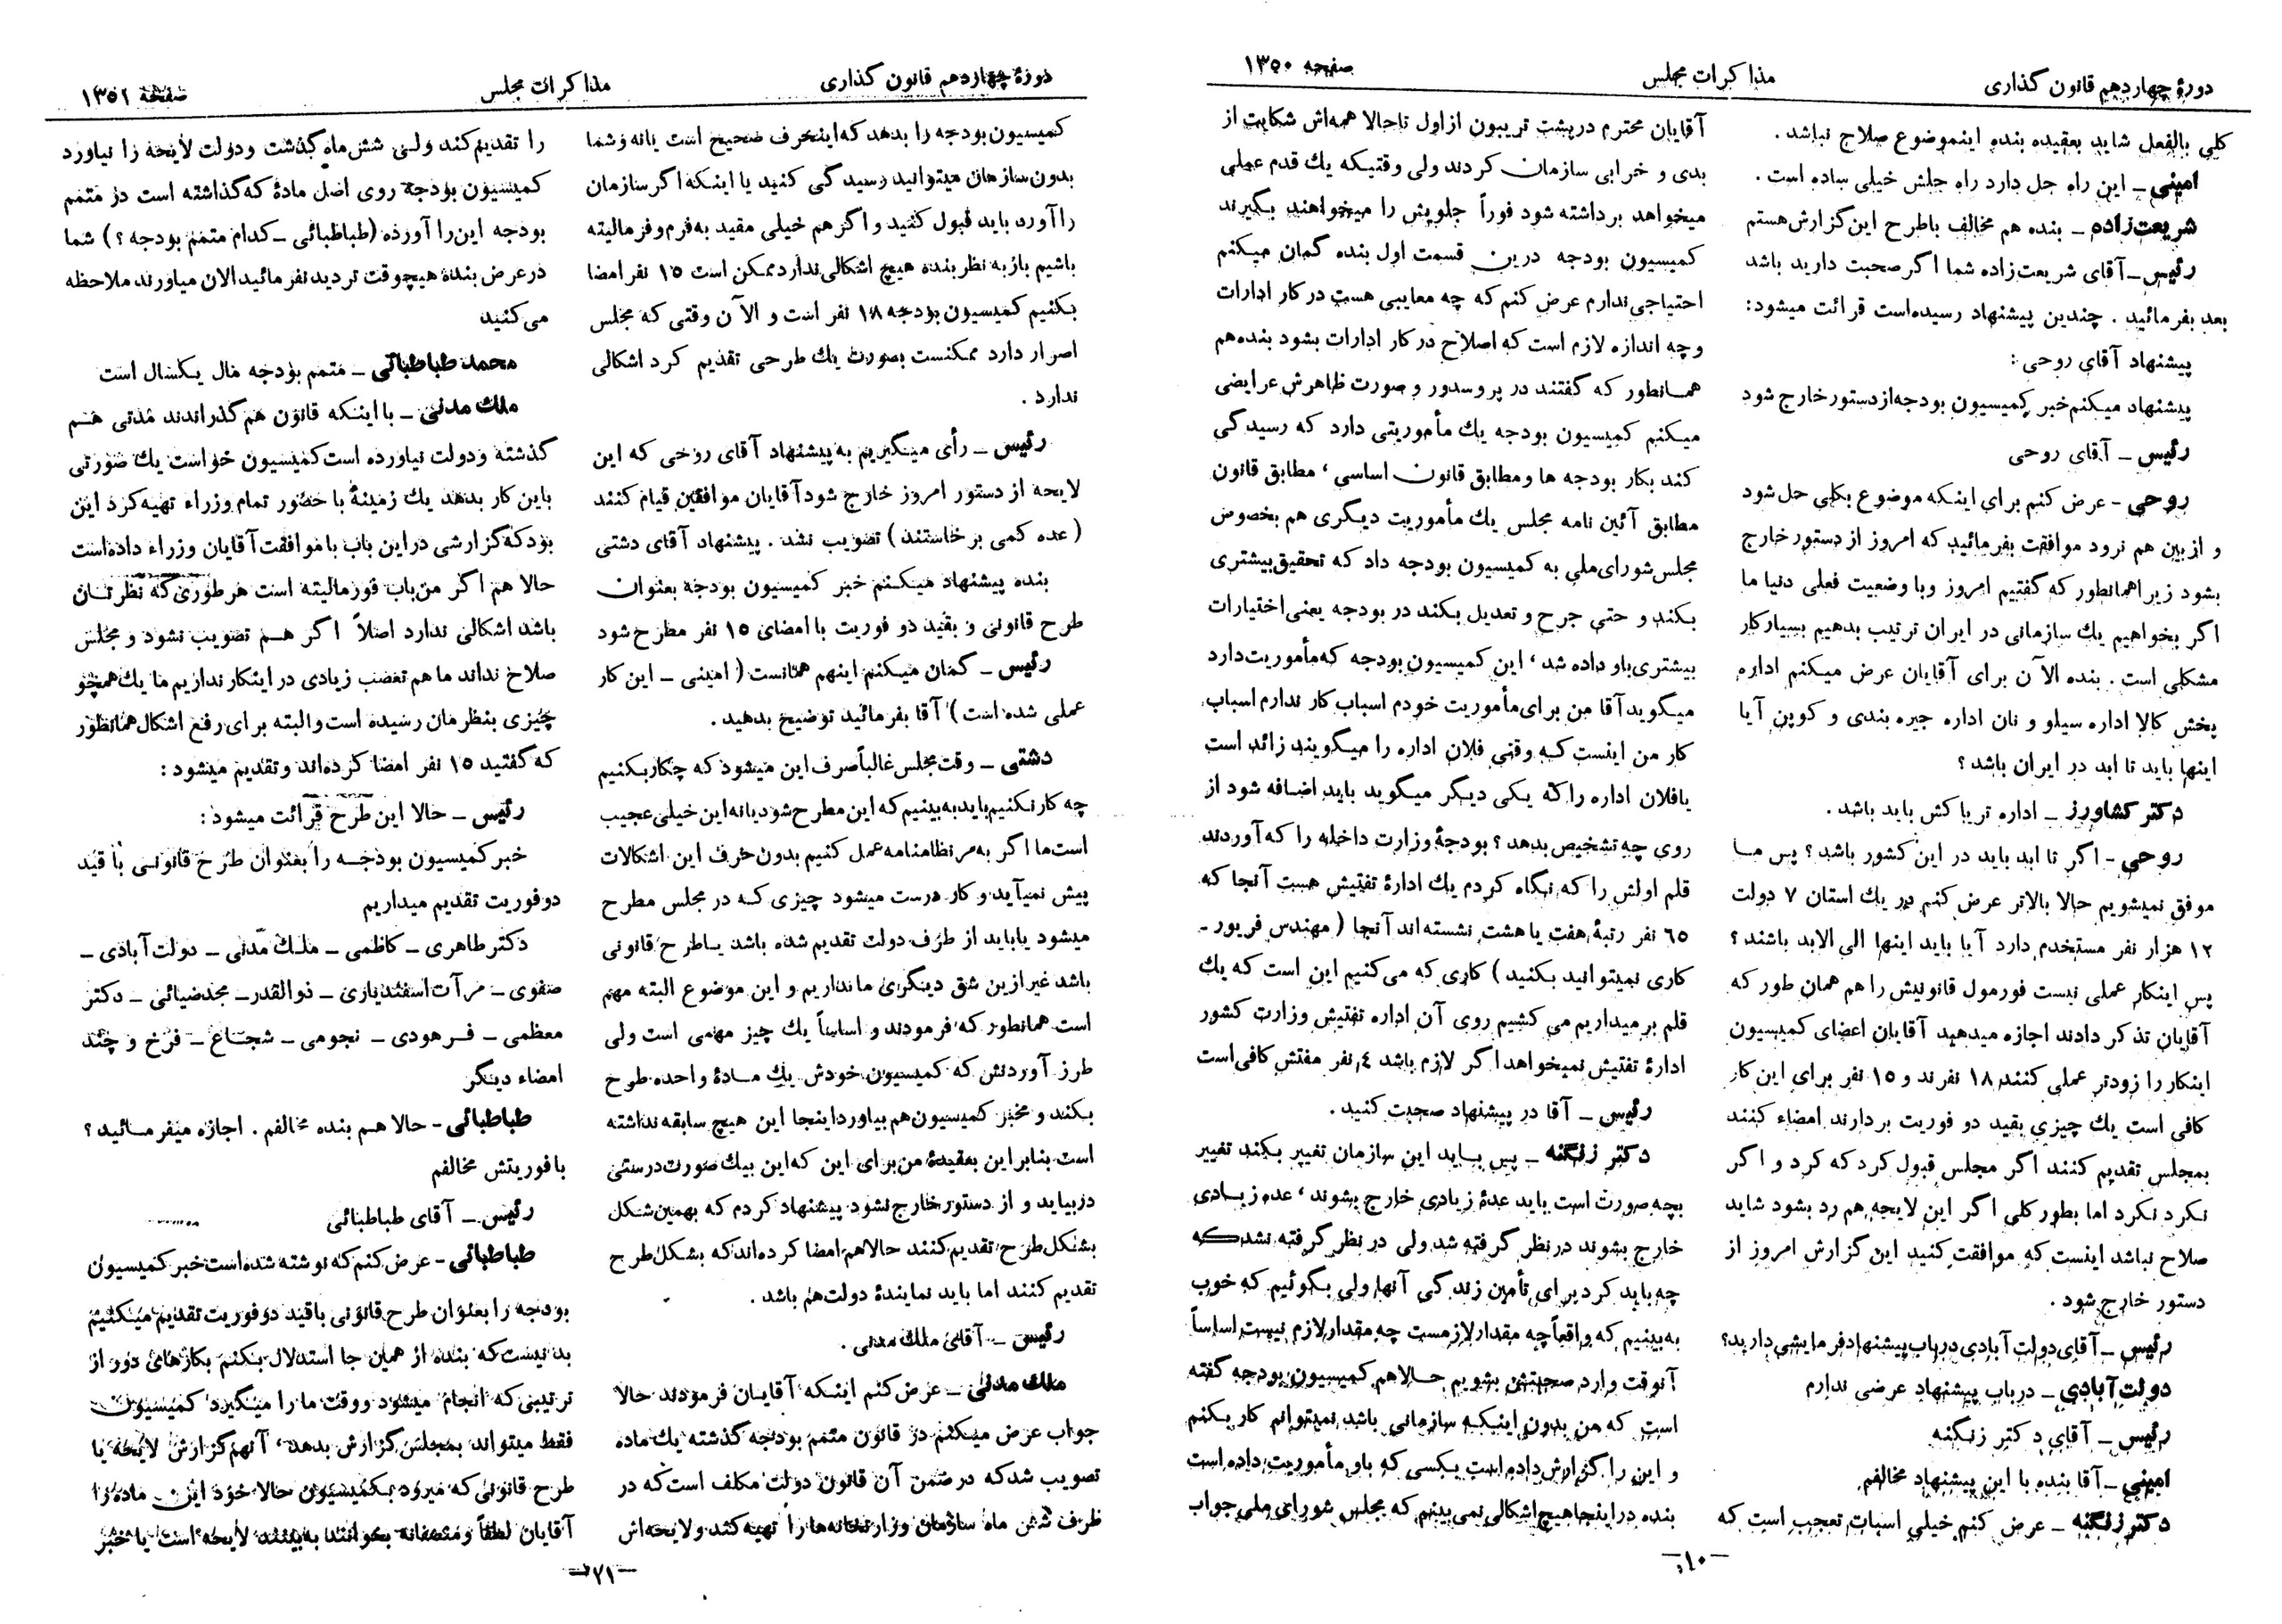 دورهٔ چهاردهم قانون گذاری
مذاکرات مجلس
صفحه ۱۳۵۰
کلی بالفعل شاید بعقیده بنده اینموضوع صلاح نباشد .
امینی ــ این راه حل دارد راه حلش خیلی ساده است .
شریعت‌زاده ــ بنده هم مخالف باطرح این گزارش هستم
رئیس ــ آقای شریعت‌زاده شما اگر صحبت دارید باشد
بعد بفرمائید . چندین پیشنهاد رسیده‌است قرائت میشود:
پیشنهاد آقای روحی :
پیشنهاد میکنم خبر کمیسیون بودجه از دستور خارج شود
رئیس ــ آقای روحی
روحی - عرض کنم برای اینکه موضوع بکلی حل شود
و از بین هم نرود موافقت بفرمائید که امروز از دستور خارج
بشود زیرا همانطور که گفتیم امروز وبا وضعیت فعلی دنیا ما
اگر بخواهیم یك سازمانی در ایران ترتیب بدهیم بسیار کار
مشکلی است . بنده الآن برای آقایان عرض میکنم اداره
پخش کالا اداره سیلو و نان اداره جیره بندی و کوپن آیا
اینها باید تا ابد در ایران باشد ؟
دکتر کشاورز ــ اداره تریاکش باید باشد .
روحی - اگر تا ابد باید در این کشور باشد ؟ پس ما
موفق نمیشویم حالا بالاتر عرض کنم در یك استان ۷ دولت
۱۲ هزار نفر مستخدم دارد آیا باید اینها الی الابد باشند ؟
پس اینکار عملی نیست فورمول قانونیش را هم همان طور که
آقایان تذکر دادند اجازه میدهید آقایان اعضای کمیسیون
اینکار را زودتر عملی کنند ۱۸ نفرند و ۱۵ نفر برای این کار
کافی است یك چیزی بقید دو فوریت بردارند امضاء کنند
بمجلس تقدیم کنند اگر مجلس قبول کرد که کرد و اگر
نکرد نکرد اما بطور کلی اگر این لایحه هم رد بشود شاید
صلاح نباشد اینست که موافقت کنید این گزارش امروز از
دستور خارج شود .
رئیس ــ آقای دولت آبادی درباب پیشنهاد فرمایشی دارید؟
دولت‌آبادی ــ درباب پیشنهاد عرضی ندارم
رئیس ــ آقای دکتر زنگنه
امینی ــ آقا بنده با این پیشنهاد مخالفم
دکتر زنگنه ــ عرض کنم خیلی اسباب تعجب است که
آقایان محترم درپشت تریبون از اول تاحالا همه‌اش شکایت از
بدی و خرابی سازمان کردند ولی وقتیکه یك قدم عملی
میخواهد برداشته شود فوراً جلویش را میخواهند بگیرند
کمیسیون بودجه درین قسمت اول بنده گمان میکنم
احتیاجی ندارم عرض کنم که چه معایبی هست در کار ادارات
وچه اندازه لازم است که اصلاح در کار ادارات بشود بنده هم
همانطور که گفتند در پروسدور و صورت ظاهرش عرایضی
میکنم کمیسیون بودجه یك مأموریتی دارد که رسیدگی
کند بکار بودجه ها ومطابق قانون اساسی ، مطابق قانون
مطابق آئین نامه مجلس یك مأموریت دیگری هم بخصوص
مجلس شورای ملی به کمیسیون بودجه داد که تحقیق بیشتری
بکند و حتی جرح و تعدیل بکند در بودجه یعنی اختیارات
بیشتری باو داده شد ، این کمیسیون بودجه که مأموریت دارد
میگوید آقا من برای مأموریت خودم اسباب کار ندارم اسباب
کار من اینست که وقتی فلان اداره را میگویند زائد است
یافلان اداره را که یکی دیگر میگوید باید اضافه شود از
روی چه تشخیص بدهد ؟ بودجهٔ وزارت داخله را که آوردند
قلم اولش را که نگاه کردم یك ادارهٔ تفتیش هست آنجا که
۶۵ نفر رتبهٔ هفت یا هشت نشسته اند آنجا ( مهندس فریور ــ
کاری نمیتوانید بکنید ) کاری که می‌کنیم این است که یك
قلم برمیداریم می کشیم روی آن اداره تفتیش وزارت کشور
ادارهٔ تفتیش نمیخواهد اگر لازم باشد ٤ نفر مفتش کافی است
رئیس ــ آقا در پیشنهاد صحبت کنید .
دکتر زنگنه ــ پس باید این سازمان تغییر بکند تغییر
بچه صورت است باید عدهٔ زیادی خارج بشوند ، عده زیادی
خارج بشوند در نظر گرفته شد ولی در نظر گرفته نشد که
چه باید کرد برای تأمین زندگی آنها ولی بگوئیم که خوب
به‌بینیم که واقعاً چه مقدار لازمست چه مقدار لازم نیست اساساً
آنوقت وارد صحبتش بشویم حالا هم کمیسیون بودجه گفته
است که من بدون اینکه سازمانی باشد نمیتوانم کار بکنم
و این را گزارش داده است بکسی که باو مأموریت داده است
بنده در اینجا هیچ اشکالی نمی بینم که مجلس شورای ملی جواب
دورهٔ چهاردهم قانون گذاری
مذاکرات مجلس
صفحه ۱۳۵۱
کمیسیون بودجه را بدهد که اینحرف صحیح است یانه وشما
بدون سازمان میتوانید رسیدگی کنید یا اینکه اگر سازمان
را آورد باید قبول کنید و اگر هم خیلی مقید به فرم و فرمالیته
باشیم باز به نظر بنده هیچ اشکالی ندارد ممکن است ۱۵ نفر امضا
بکنیم کمیسیون بودجه ۱۸ نفر است و الآن وقتی که مجلس
اصرار دارد ممکنست بصورت یك طرحی تقدیم کرد اشکالی
ندارد .
رئیس ــ رأی میگیریم به پیشنهاد آقای روحی که این
لایحه از دستور امروز خارج شود آقایان موافقین قیام کنند
( عده کمی برخاستند ) تصویب نشد . پیشنهاد آقای دشتی
بنده پیشنهاد میکنم خبر کمیسیون بودجه بعنوان
طرح قانونی و بقید دو فوریت با امضای ۱۵ نفر مطرح شود
رئیس ــ گمان میکنم اینهم همانست ( امینی ــ این کار
عملی شده است ) آقا بفرمائید توضیح بدهید .
دشتی ــ وقت مجلس غالباً صرف این میشود که چکار بکنیم
چه کار نکنیم باید به بینیم که این مطرح شود یا نه این خیلی عجیب
است ما اگر به مر نظامنامه عمل کنیم بدون حرف این اشکالات
پیش نمیآید و کار درست میشود چیزی که در مجلس مطرح
میشود یا باید از طرف دولت تقدیم شده باشد یا طرح قانونی
باشد غیر ازین شق دیگری ما نداریم و این موضوع البته مهم
است همانطور که فرمودند و اساساً یك چیز مهمی است ولی
طرز آوردنش که کمیسیون خودش یك مادهٔ واحده طرح
بکند و مخبر کمیسیون هم بیاورد اینجا این هیچ سابقه نداشته
است بنابراین بعقیدهٔ من برای این که این بیك صورت درستی
دربیاید و از دستور خارج نشود پیشنهاد کردم که بهمین شکل
بشکل طرح تقدیم کنند حالا هم امضا کرده‌اند که بشکل طرح
تقدیم کنند اما باید نمایندهٔ دولت هم باشد .
رئیس ــ آقای ملك مدنی .
ملك مدنی ــ عرض کنم اینکه آقایان فرمودند حالا
جواب عرض میکنم در قانون متمم بودجه گذشته یك ماده
تصویب شد که در ضمن آن قانون دولت مکلف است که در
ظرف شش ماه سازمان وزارتخانه‌ها را تهیه کند و لایحه‌اش
را تقدیم کند ولی شش ماه گذشت و دولت لایحه را نیاورد
کمیسیون بودجه روی اصل مادهٔ که گذاشته است در متمم
بودجه این را آورده (طباطبائی ــ کدام متمم بودجه ؟) شما
در عرض بنده هیچوقت تردید نفرمائید الان میاورند ملاحظه
می کنید
محمد طباطبائی ــ متمم بودجه مال یکسال است
ملك مدنی ــ با اینکه قانون هم گذراندند مدتی هم
گذشته و دولت نیاورده است کمیسیون خواست یك صورتی
باین کار بدهد یك زمینهٔ با حضور تمام وزراء تهیه کرد این
بود که گزارشی در این باب با موافقت آقایان وزراء داده است
حالا هم اگر من باب فورمالیته است هر طوری که نظرتان
باشد اشکالی ندارد اصلاً اگر هم تصویب نشود و مجلس
صلاح نداند ما هم تعصب زیادی در اینکار نداریم ما یك همچو
چیزی بنظرمان رسیده است و البته برای رفع اشکال همانطور
که گفتید ۱۵ نفر امضا کرده‌اند و تقدیم میشود :
رئیس ــ حالا این طرح قرائت میشود :
خبر کمیسیون بودجه را بعنوان طرح قانونی با قید
دو فوریت تقدیم میداریم
دکتر طاهری ــ کاظمی ــ ملك مدنی ــ دولت آبادی ــ
صفوی ــ مرآت اسفندیاری ــ ذوالقدر ــ مجد ضیائی ــ دکتر
معظمی ــ فرهودی ــ نجومی ــ شجاع ــ فرخ و چند
امضاء دیگر
طباطبائی - حالا هم بنده مخالفم . اجازه میفرمائید ؟
با فوریتش مخالفم
رئیس ــ آقای طباطبائی
طباطبائی - عرض کنم که نوشته شده است خبر کمیسیون
بودجه را بعنوان طرح قانونی با قید دو فوریت تقدیم میکنیم
بد نیست که بنده از همین جا استدلال بکنم بکارهای دور از
ترتیبی که انجام میشود و وقت ما را میگیرد ، کمیسیون
فقط میتواند بمجلس گزارش بدهد ، آنهم گزارش لایحه یا
طرح قانونی که میرود بکمیسیون حالا خود این ماده را
آقایان لطفاً و منصفانه بخوانند به‌بینند لایحه است یا خبر